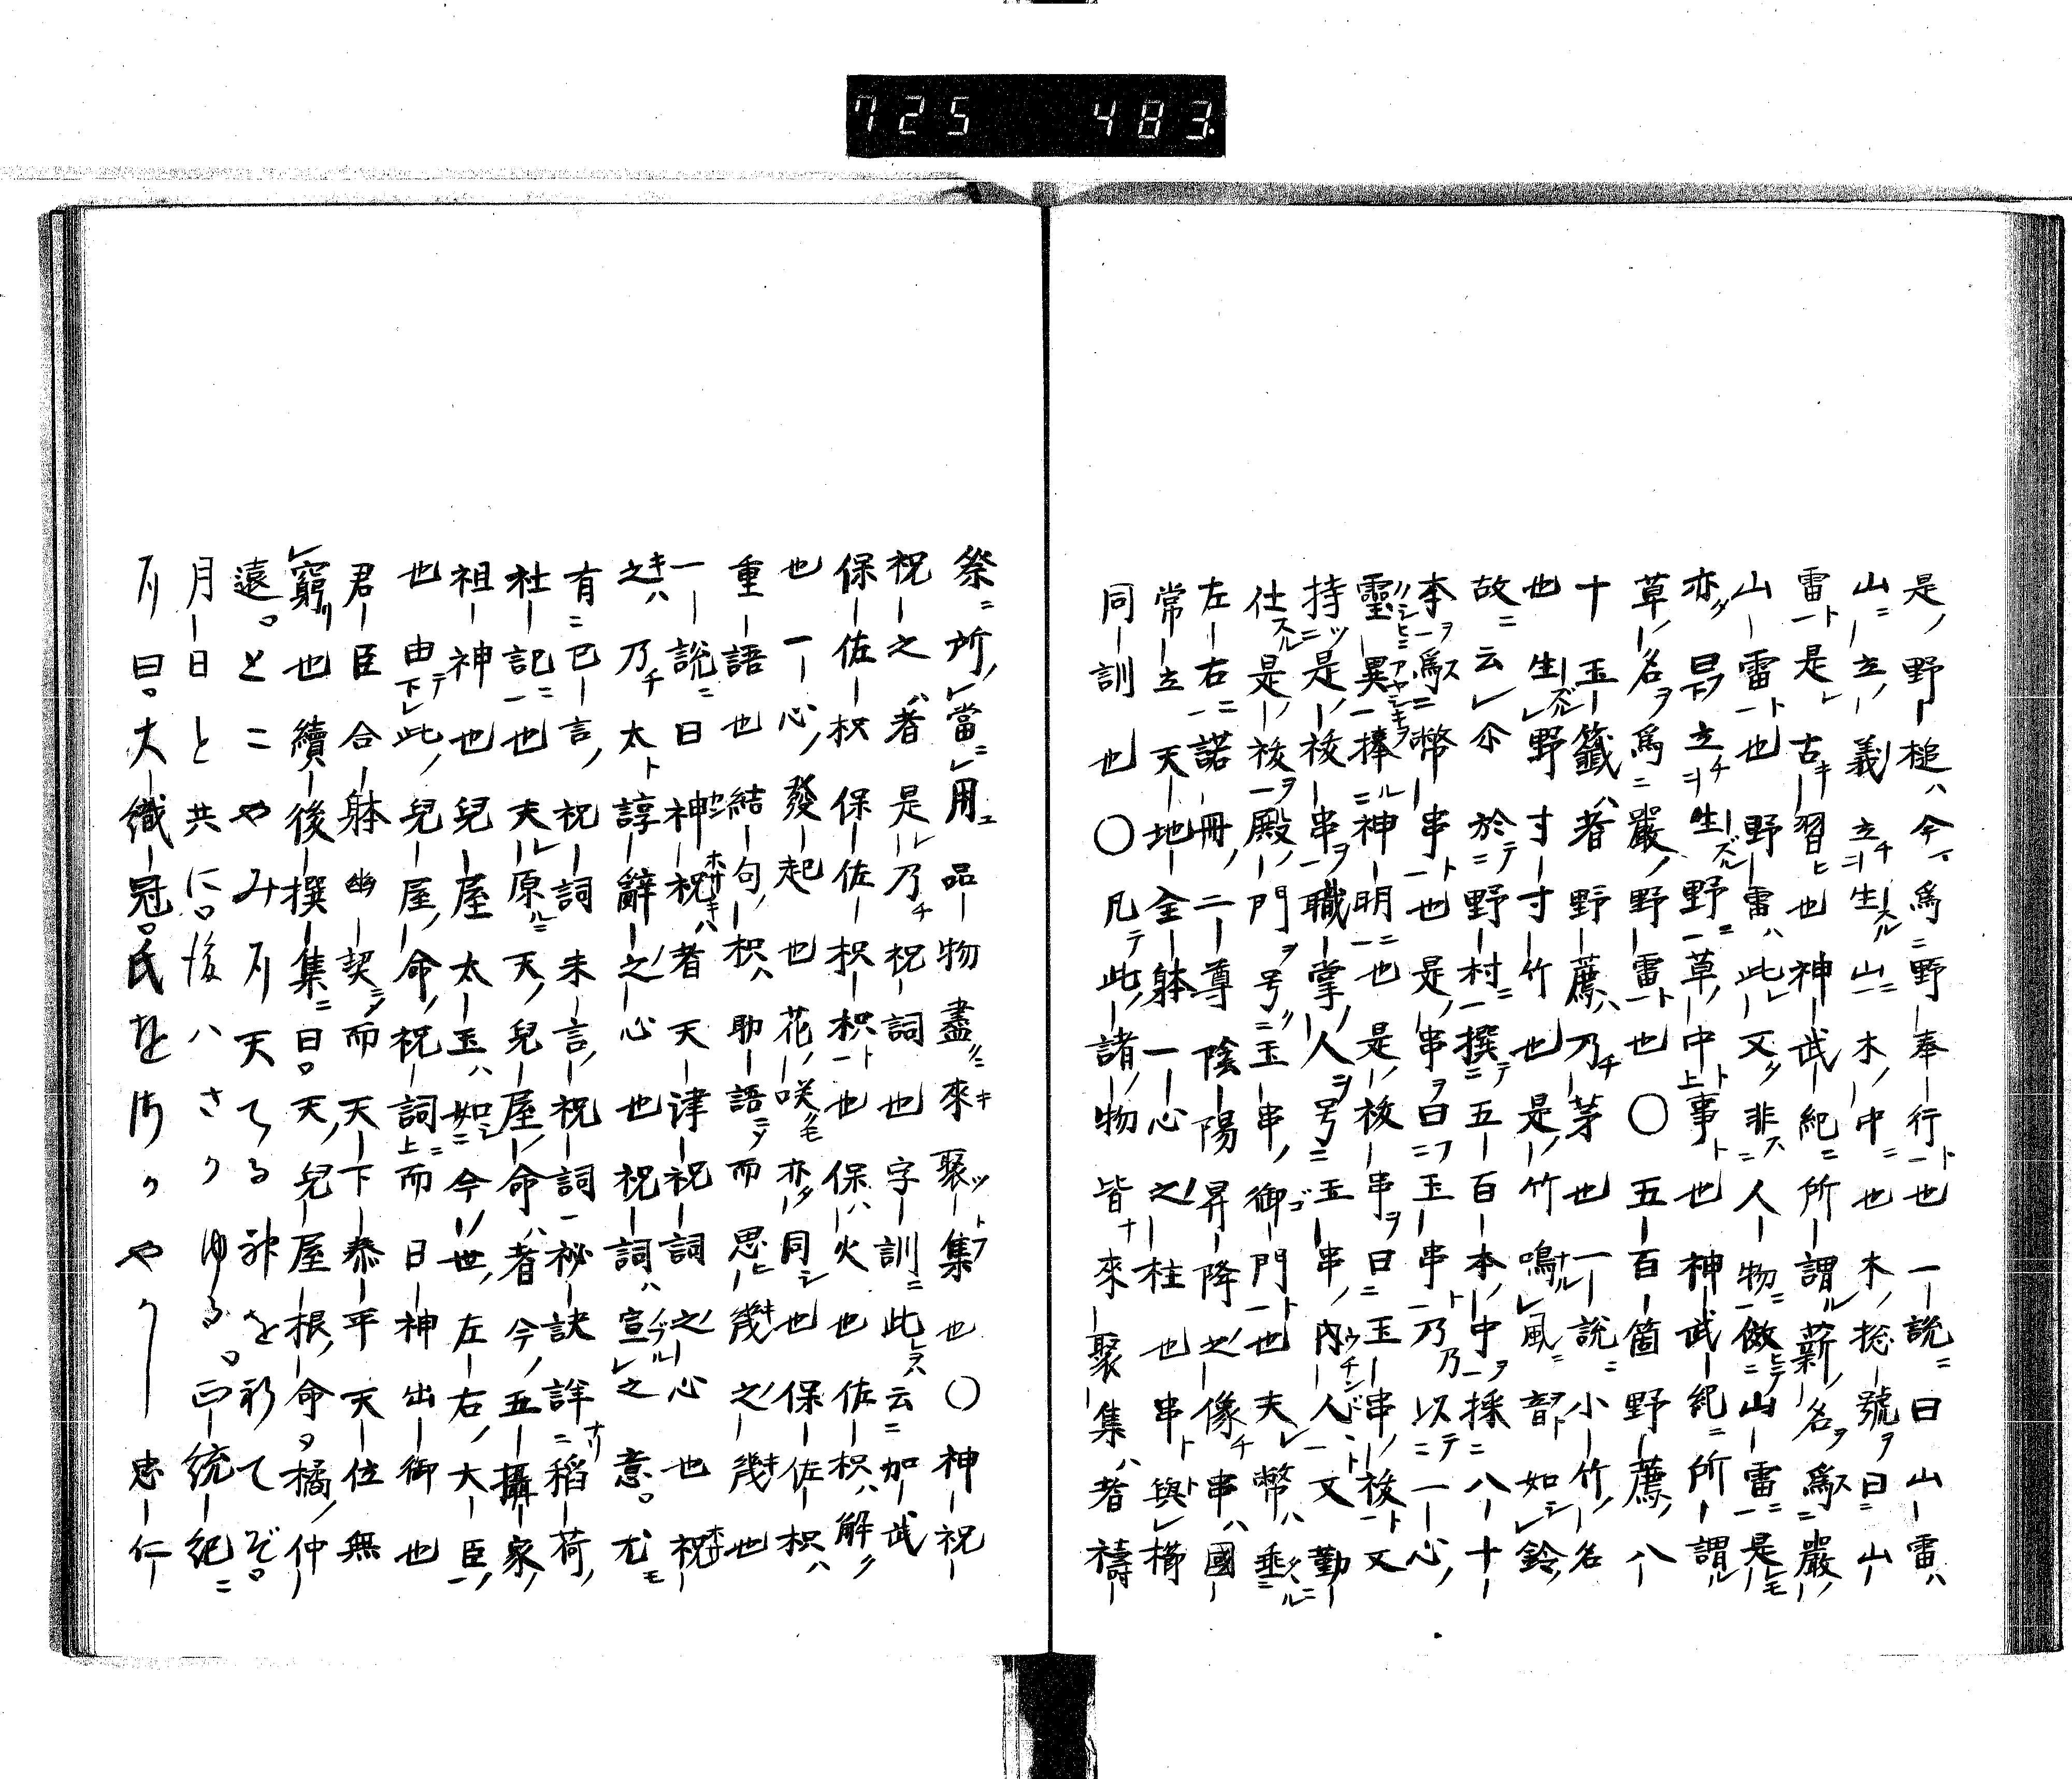 725 483
是野槌今為野奉行也一說曰山雷
山立義立生山木中也木惣號曰山
雷是古習也神武紀所謂薪名為嚴
山雷也野雷此又非人物倣山雷是
亦曰立生野草中事也神武紀所謂
草名為嚴野雷也〇五百箇野薦八
十玉籤者野薦乃茅也一說小竹名
也生野寸寸竹也是竹鳴風音如鈴
故云尒於野村撰五百本中採八十
本為幣串也是串曰玉串乃以一心
靈異捧神明也是串曰玉串又
持是串職掌人号玉串內人又勤
仕是殿門号玉串御門也夫幣垂
左右諾冊二尊陰陽昇降之像串國
常立天地全躰一心之柱也串與櫛
同訓也〇凡此諸物皆來聚集者禱
祭所當用品物盡來聚集也〇神祝
祝之者是乃祝詞也字訓此云加武
保佐枳保佐枳枳也保火也佐枳解
也一心發起也花咲亦同也保佐枳
重語也結句枳助語而思幾之幾也
一說曰神祝者天津祝詞之心也祝
之乃太諄辭之心也祝詞宣之意尤
有巳言祝詞未言祝詞秘訣詳稻荷
社記也夫原天兒屋命者今五攝家
祖神也兒屋太玉如今世左右大臣
也由此兒屋命祝詞而日神出御也
君臣合躰幽契而天下泰平天位無
窮也續後撰集曰天兒屋根命橘仲
遠とこやみ天てる神を祈てぞ
月日と共に後ハさゆる正統紀
曰大織冠氏をやかし忠仁